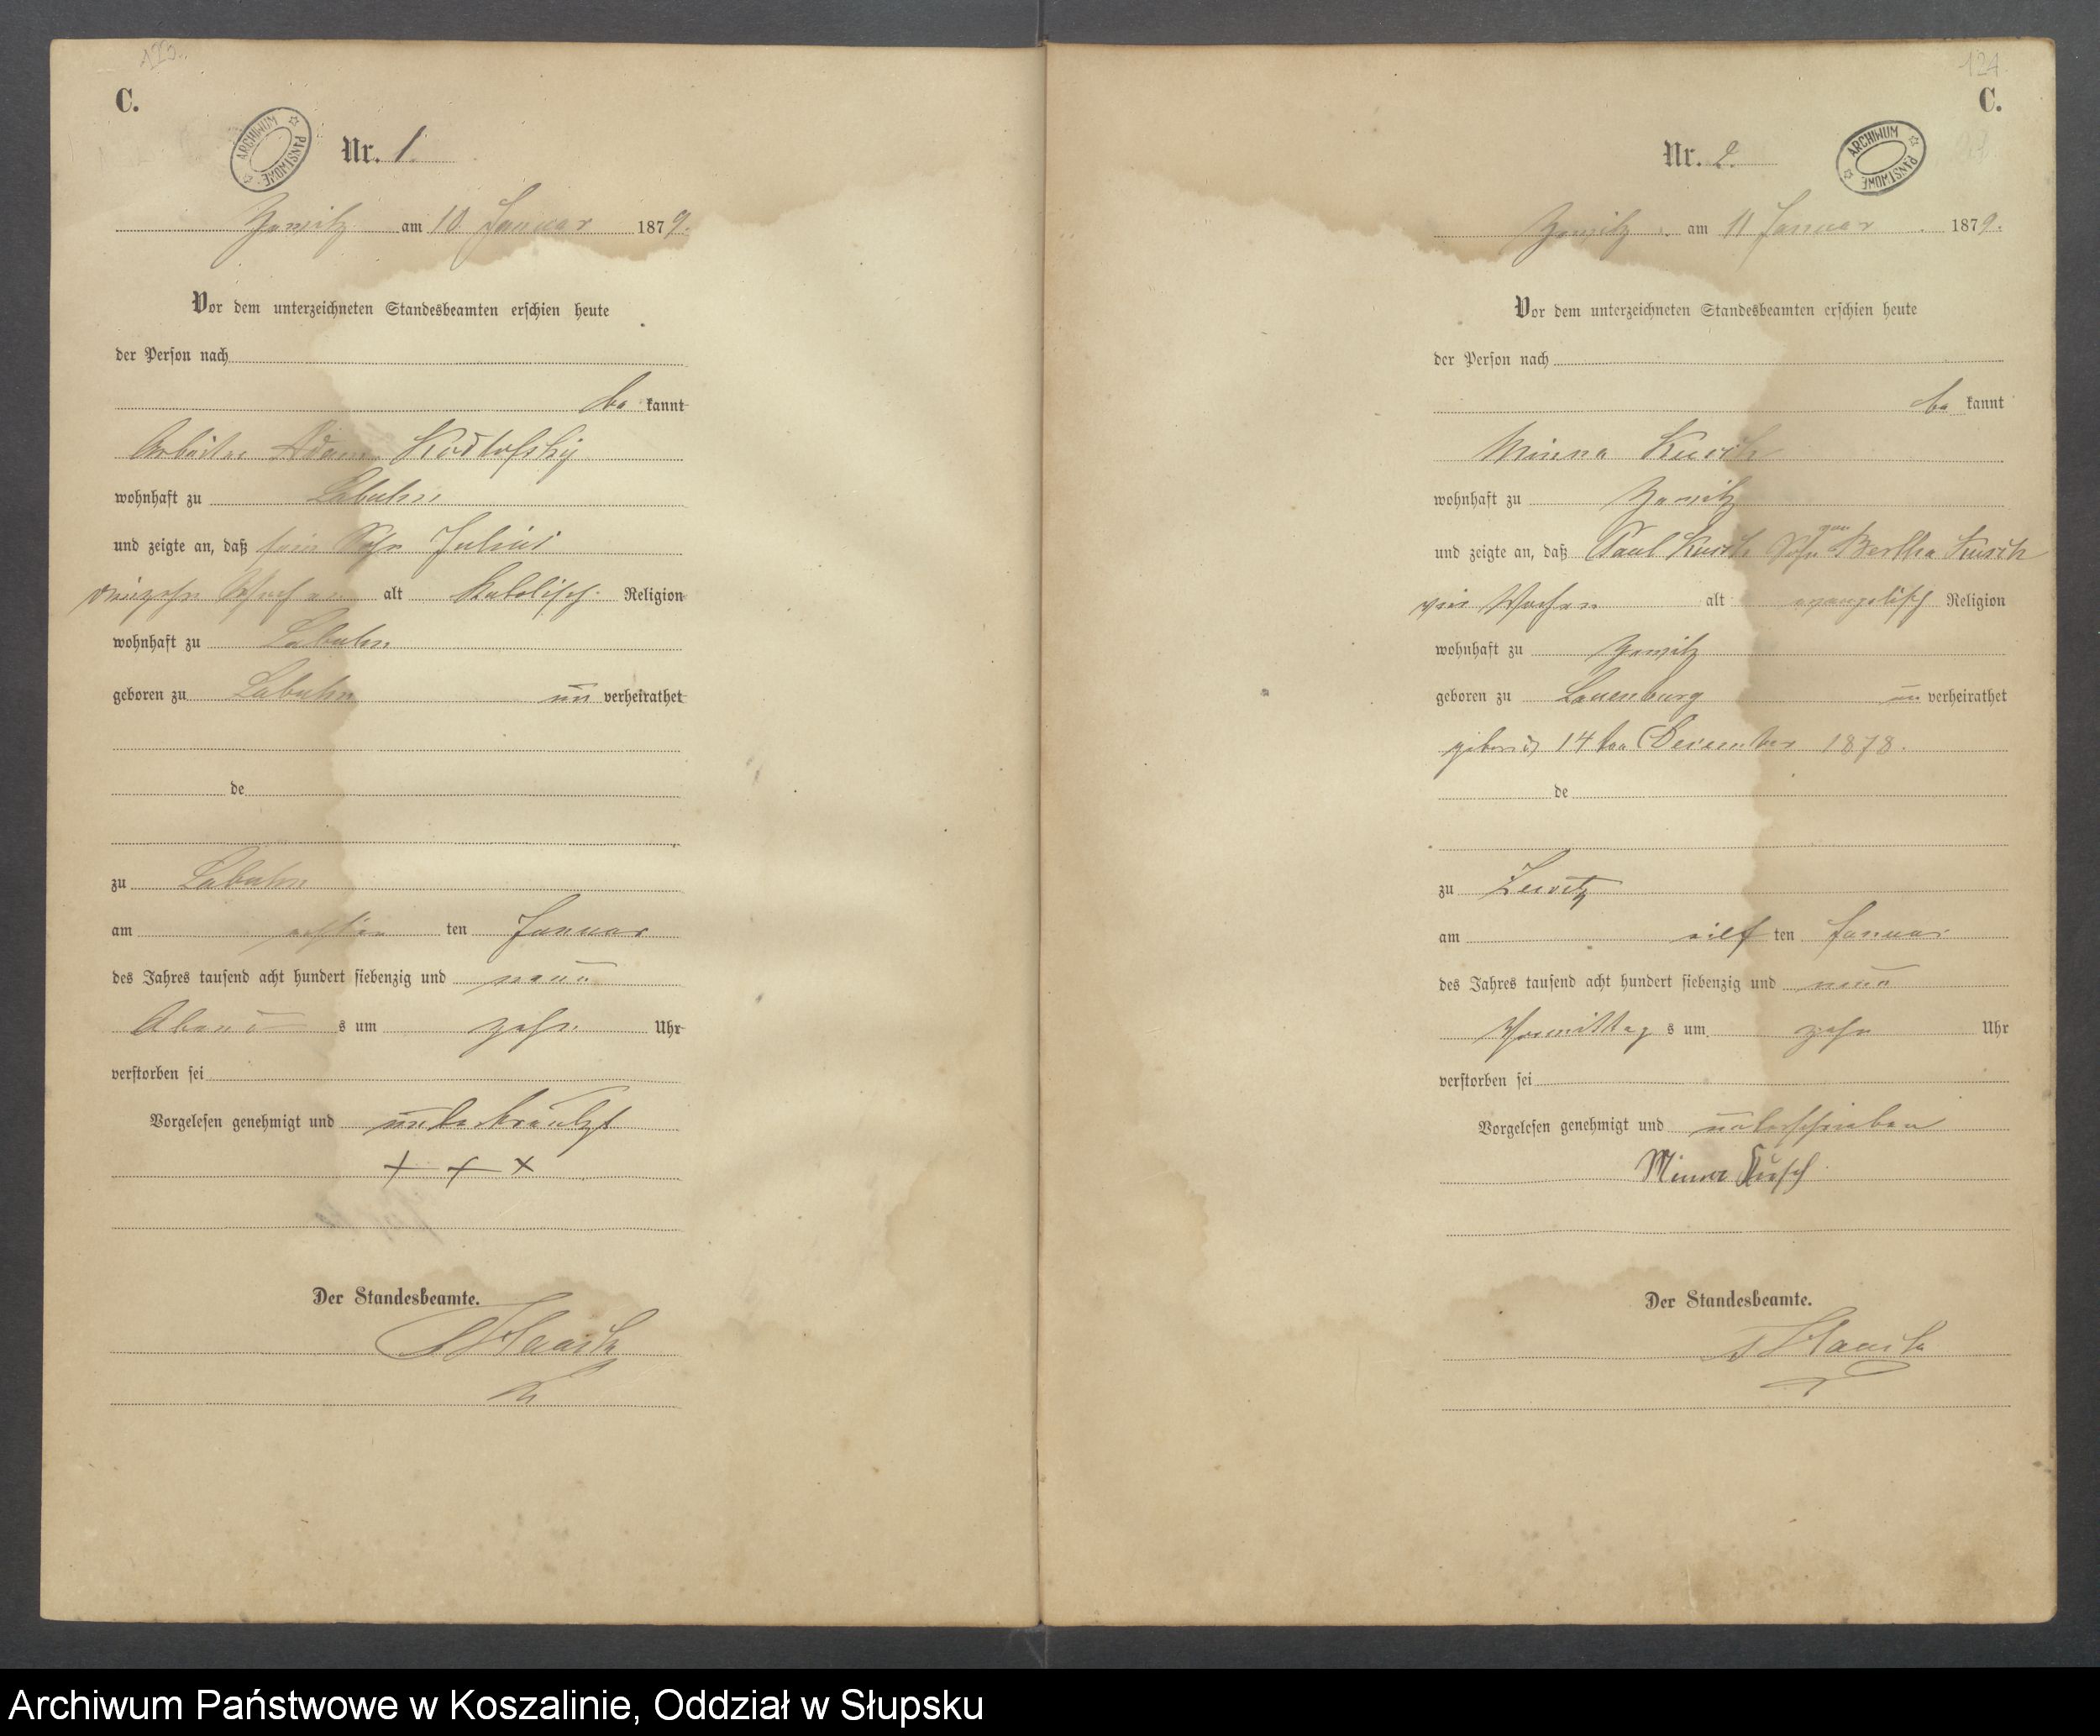 C.
ARCHIWUM PAŃSTWOWE
Nr. 1.
am 10 Januar 1879.
Vor dem unterzeichneten Standesbeamten erschien heute
der Person nach
be kannt
Arbeiter Adam
wohnhaft zu Labuhn
und zeigte an, daß sein Sohn Julius
alt Katolisch. Religion
wohnhaft zu Labuhn
geboren zu Labuhn un verheirathet
de
zu Labuhn
am ten Januar
des Jahres tausend acht hundert siebenzig und neun
Abend s um zehn Uhr
verstorben sei
Vorgelesen genehmigt und unterkreuzt
+ + x
Der Standesbeamte.
124.
C.
ARCHIWUM PAŃSTWOWE
Nr. 2.
am 11 Januar 1879.
Vor dem unterzeichneten Standesbeamten erschien heute
der Person nach
be kannt
Minna Kusch
wohnhaft zu
und zeigte an, daß Paul Kusch Sohn Bertha Kusch
vier Wochen alt evangelisch Religion
wohnhaft zu
geboren zu Lauenburg un verheirathet
14ten Dezember 1878.
de
zu
am eilf ten Januar
des Jahres tausend acht hundert siebenzig und neun
Vormittag s um zehn Uhr
verstorben sei
Vorgelesen genehmigt und unterschrieben
Minna Kusch
Der Standesbeamte.
Archiwum Państwowe w Koszalinie, Oddział w Słupsku